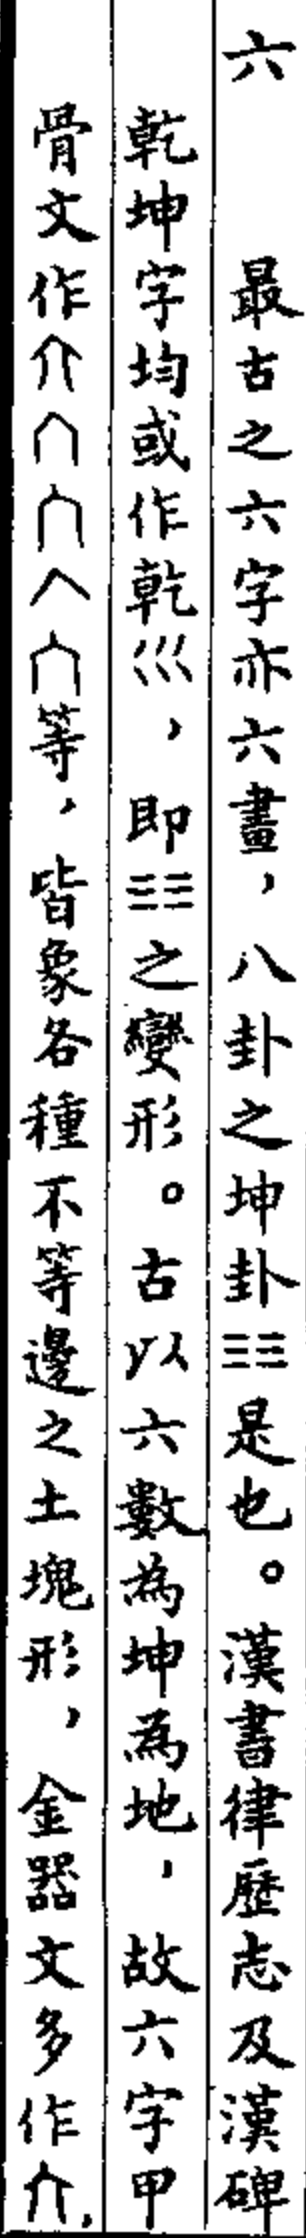 六　最古之六字亦六畫，八卦之坤卦☷是也。漢書律歷志及漢碑
乾坤字均或作乾巛，即☷之變形。古以六數為坤為地，故六字甲
骨文作等，皆象各種不等邊之土塊形，金器文多作